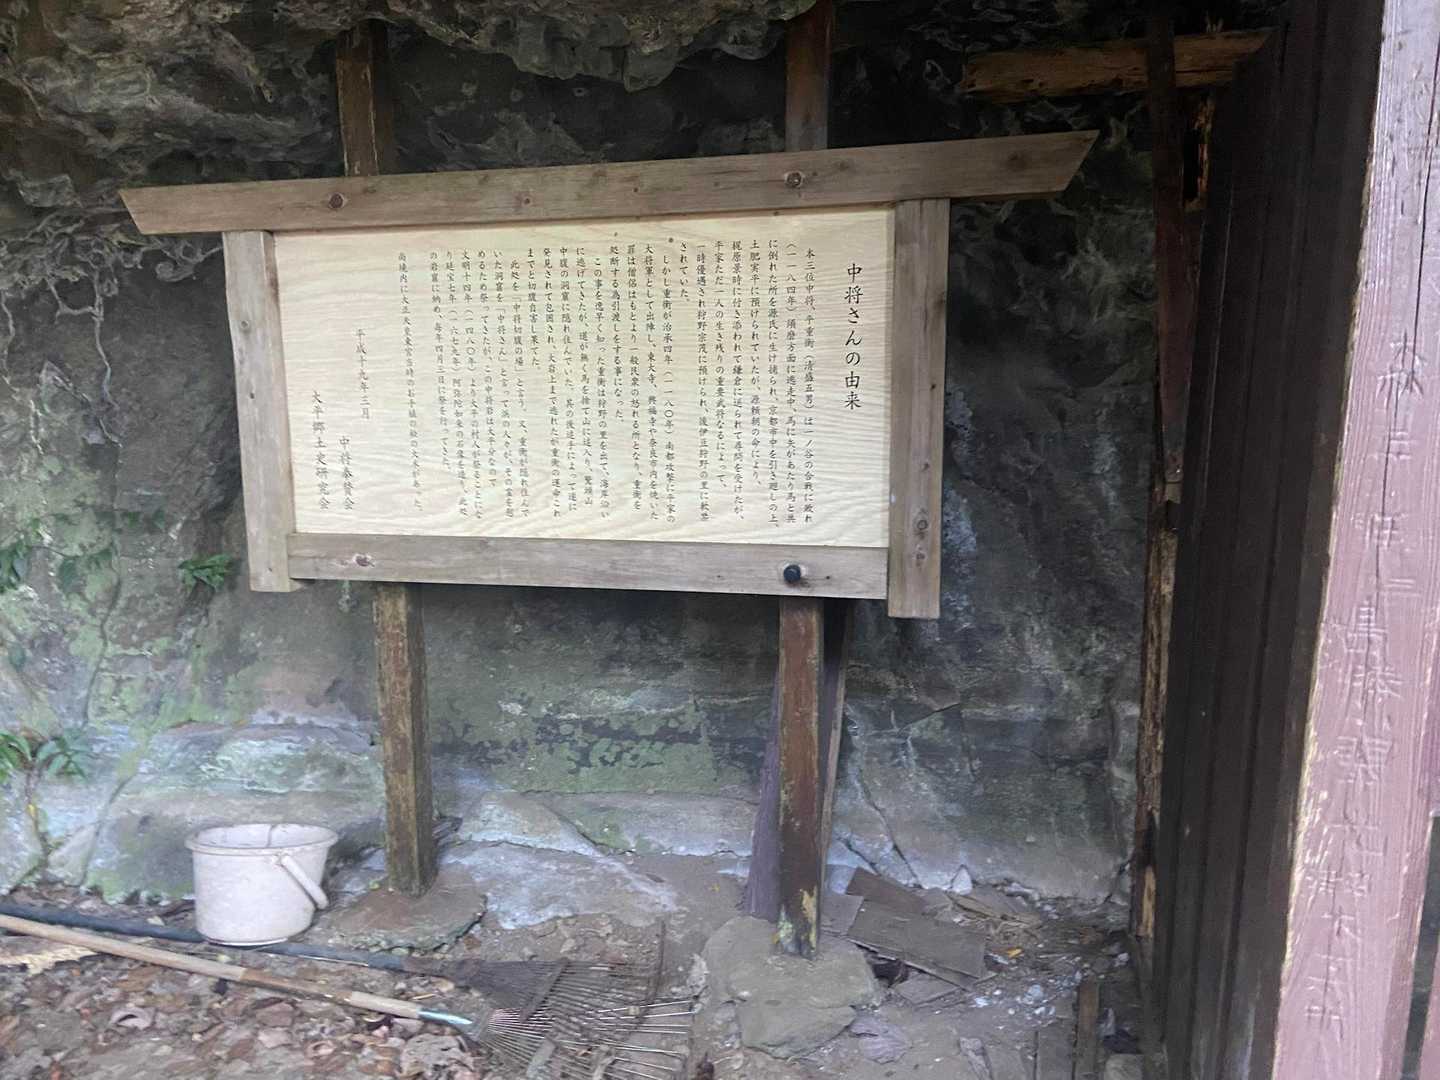 中将さんの由来
本三位中将、平重衡（清盛五男）は一ノ谷の合戦に敗れ
（一一八四年）須磨方面に逃走中、馬に矢があたり馬と共
に倒れた所を源氏に生け捕られ、京都市中を引き廻しの上、
土肥実平に預けられていたが、源頼朝の命により、
梶原景時に付き添われて鎌倉に送られて尋問を受けたが、
平家ただ一人の生き残りの重要武将なるによって、
一時優遇され狩野宗茂に預けられ、後伊豆狩野の里に軟禁
されていた。
しかし重衡が治承四年（一一八〇年）南都攻撃に平家の
大将軍として出陣し、東大寺、興福寺や奈良市内を焼いた
罪は僧侶はもとより一般民衆の怒れる所となり、重衡を
処断する為引渡しをする事になった。
この事を逸早く知った重衡は狩野の里を出て、海岸沿い
に逃げてきたが、道が無く馬を捨て山に这入り、鷲頭山
中腹の洞窟に隠れ住んでいた。其の後追手によって遂に
発見されて包囲され、大岩上まで逃れたが重衡の運命これ
までと切腹自害し果てた。
此処を「中将切腹の場」と言う。又、重衡が隠れ住んで
いた洞窟を「中将さん」と言って浜の人々が、その霊を慰
めるため祭ってきたが、この中将岩は大平分なので
文明十四年（一四八〇年）より大平の村人が祭ることにな
り延宝七年（一六七九年）阿弥陀如来の石像を造り、此処
の岩窟に納め、毎年四月三日に祭を行ってきた。
尚境内に大正天皇東宮当時のお手植の松の大木があった。
平成十九年三月
中将奉賛会
大平郷土史研究会